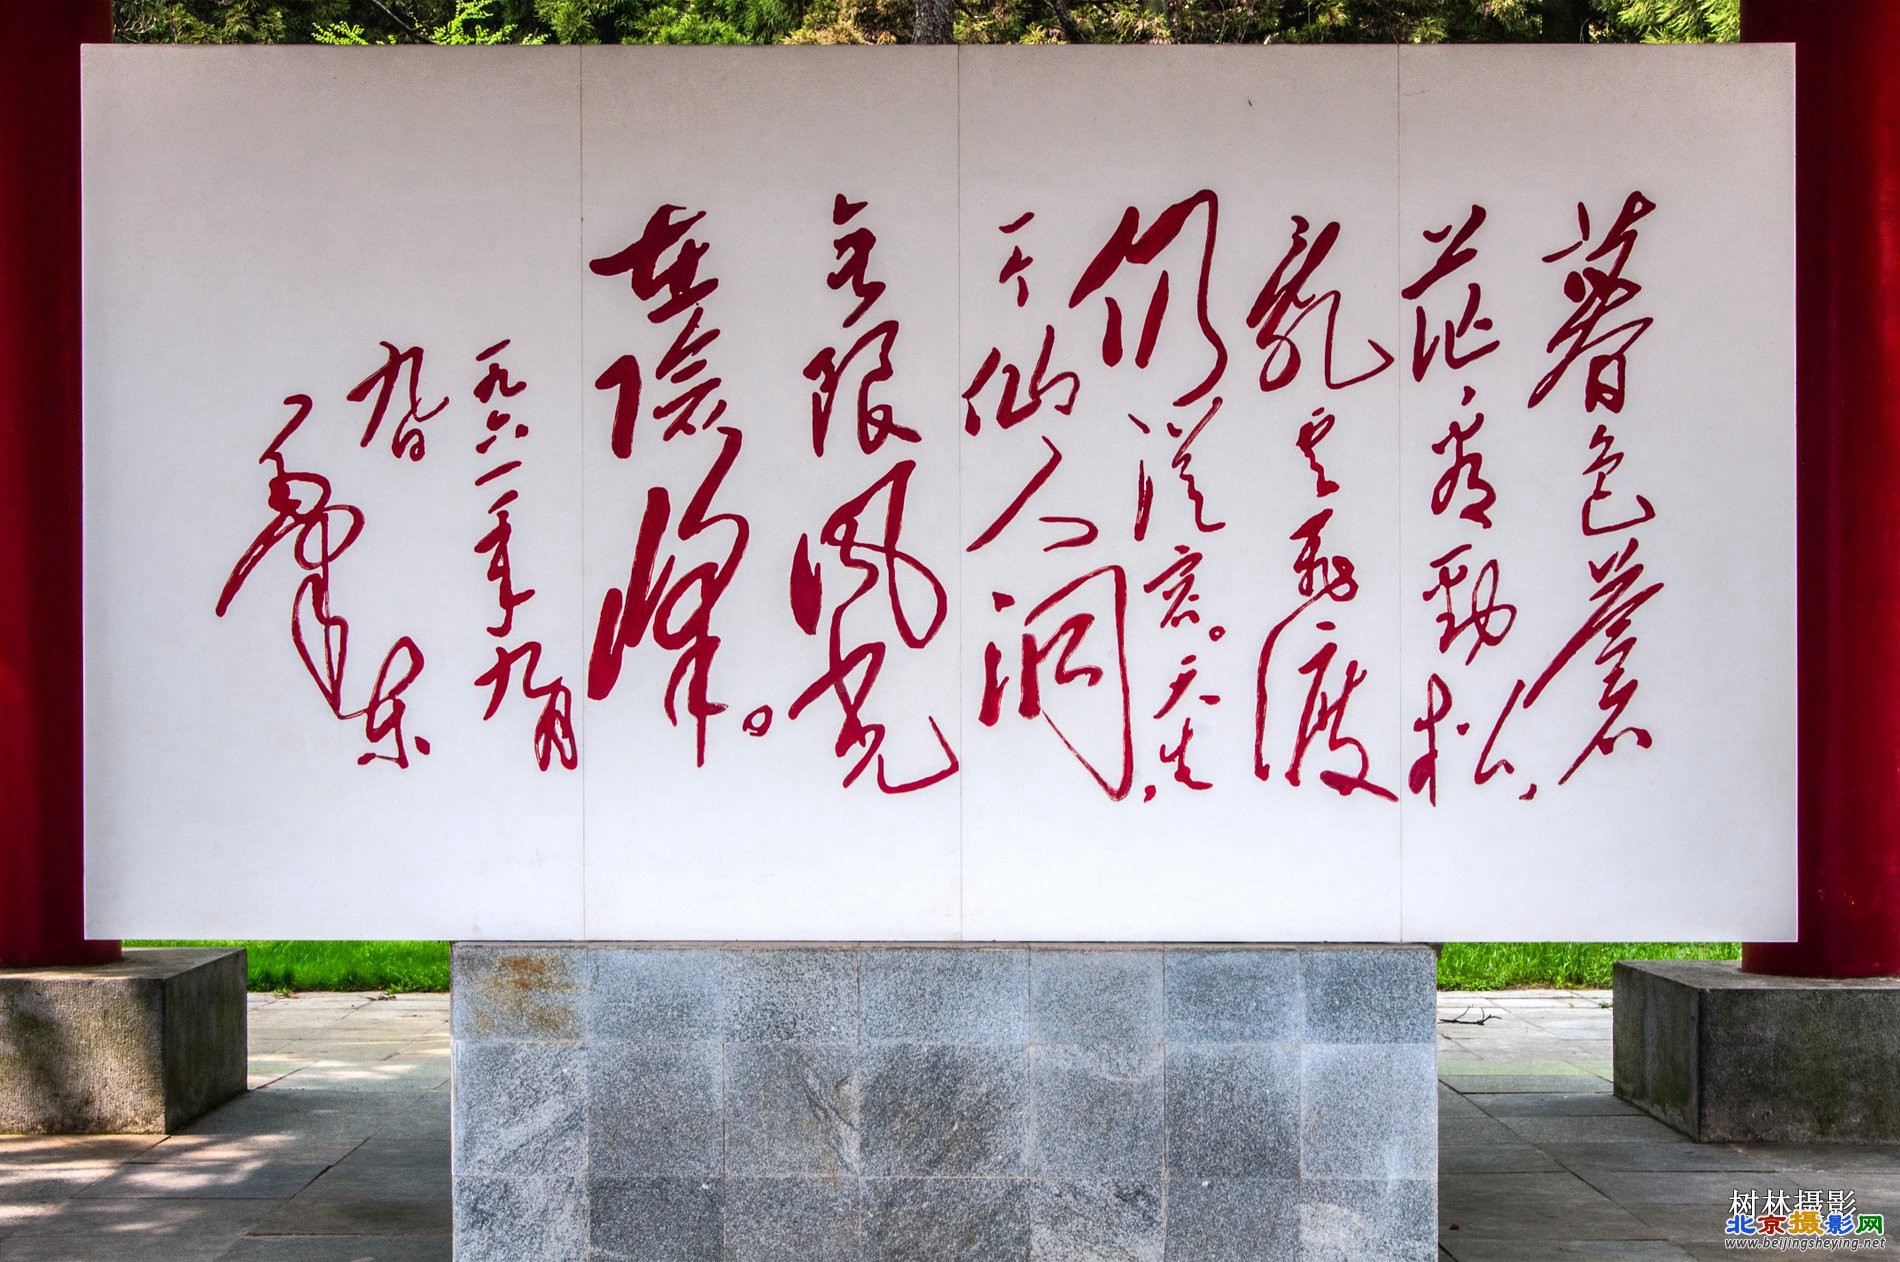 暮色苍
茫看劲松，
乱云飞渡
仍从容。天生
一个仙人洞，
无限风光
在险峰。
一九六一年九月
九日
毛泽东
树林摄影
北京摄影网
www.beijingsheying.net